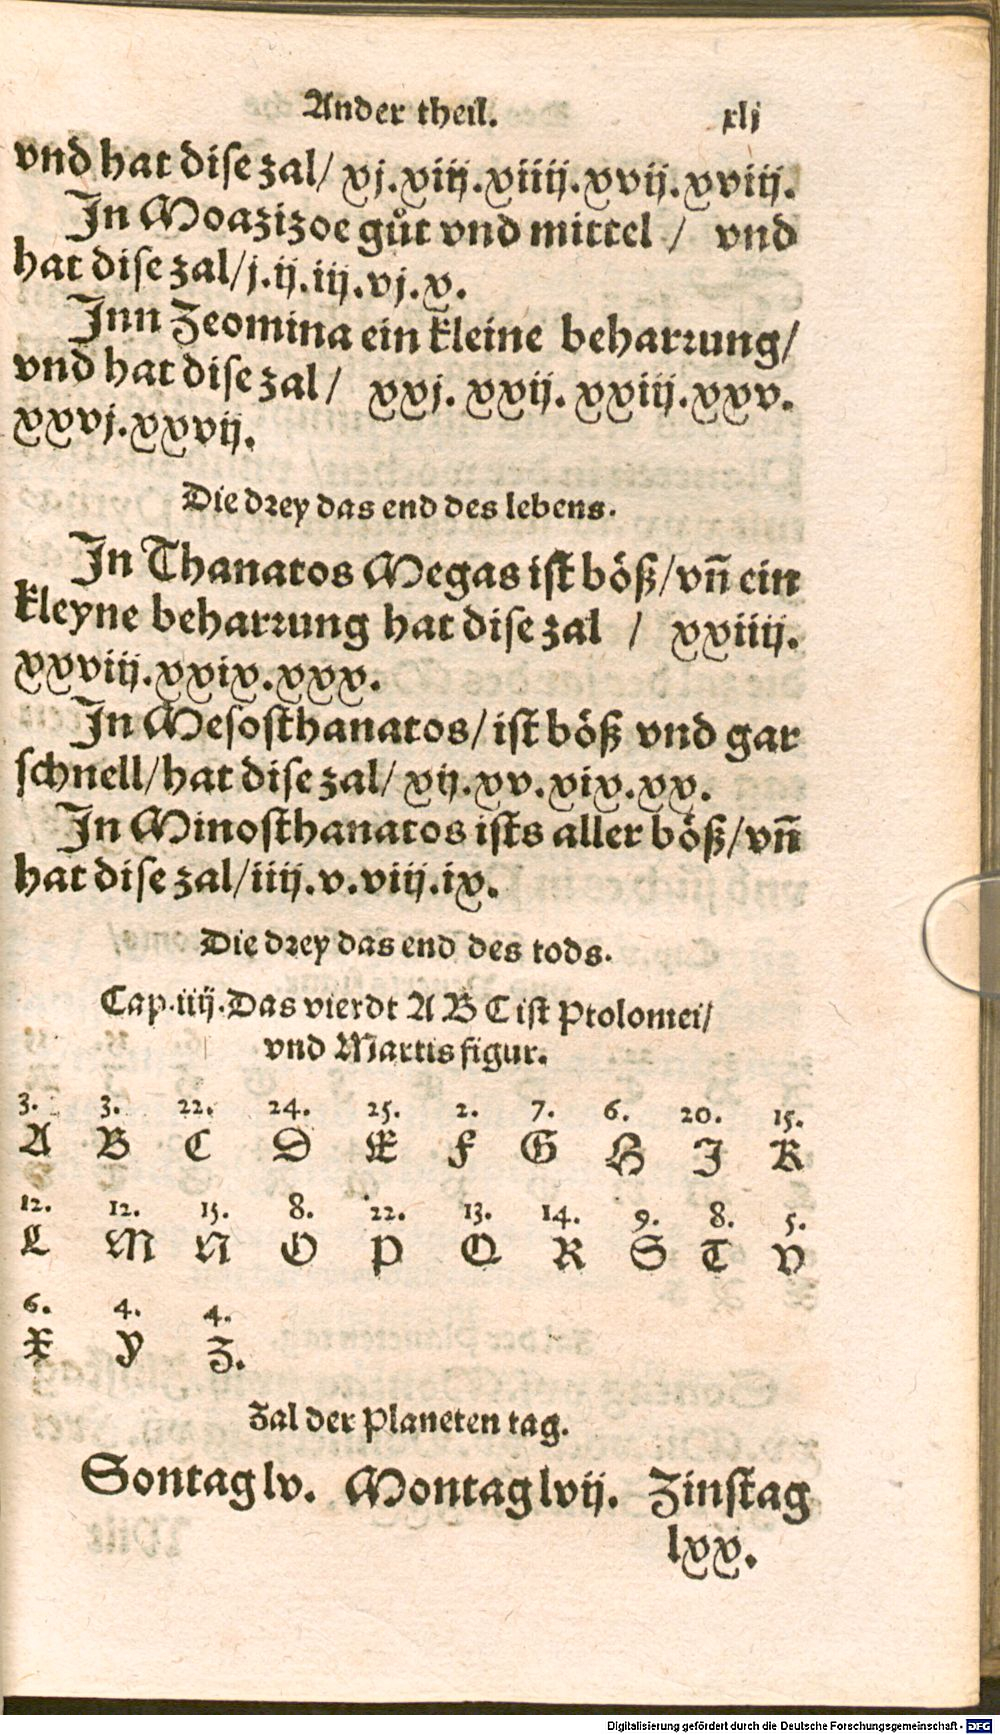 Ander theil. xlj
vnd hat dise zal/ xj.xiij.xiiij.xvij.xviij.
In Moazizoe gůt vnd mittel / vnd
hat dise zal/j.ij.iij.vj.x.
Inn Zeomina ein kleine beharrung/
vnd hat dise zal/ xxj. xxij. xxiij.xxv.
xxvj.xxvij.
Die drey das end des lebens.
In Thanatos Megas ist böß/vn̄ ein
kleyne beharrung hat dise zal / xxiiij.
xxviij.xxix.xxx.
In Mesosthanatos/ist böß vnd gar
schnell/hat dise zal/ xij.xv.xix.xx.
In Minosthanatos ists aller böß/vn̄
hat dise zal/iiij.v.viij.ix.
Die drey das end des tods.
Cap.iiij.Das vierdt A B C ist Ptolomei/
vnd Martis figur.
3. 3. 22. 24. 25. 2. 7. 6. 20. 15.
A B C D E F G H I K
12. 12. 15. 8. 22. 13. 14. 9. 8. 5.
L M N O P Q R S T V
6. 4. 4.
X Y Z.
Zal der Planeten tag.
Sontag lv. Montag lvij. Zinstag
lxx.
Digitalisierung gefördert durch die Deutsche Forschungsgemeinschaft - DFG